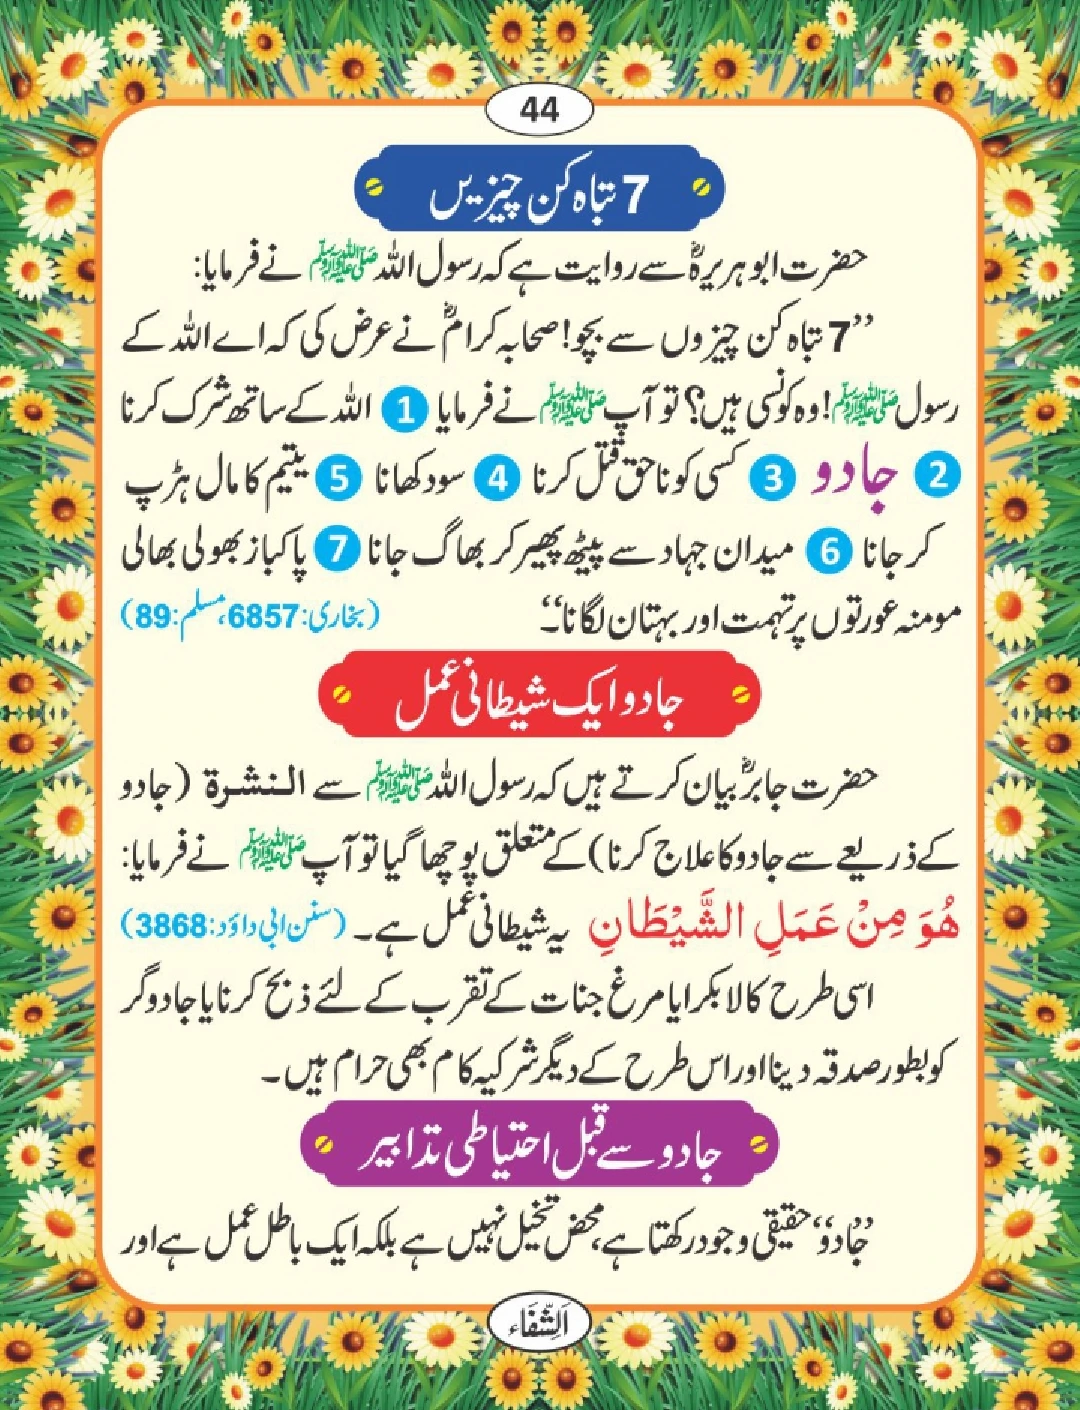 44
7 تباہ کن چیزیں
حضرت ابو ہریرہؓ سے روایت ہے کہ رسول اللہ ﷺ نے فرمایا:
”7 تباہ کن چیزوں سے بچو! صحابہ کرامؓ نے عرض کی کہ اے اللہ کے
رسول ﷺ! وہ کونسی ہیں؟ تو آپ ﷺ نے فرمایا 1 اللہ کے ساتھ شرک کرنا
2 جادو 3 کسی کو ناحق قتل کرنا 4 سود کھانا 5 یتیم کا مال ہڑپ
کر جانا 6 میدان جہاد سے پیٹھ پھیر کر بھاگ جانا 7 پاکباز بھولی بھالی
مومنہ عورتوں پر تہمت اور بہتان لگانا“۔ (بخاری:6857، مسلم:89)
جادو ایک شیطانی عمل
حضرت جابرؓ بیان کرتے ہیں کہ رسول اللہ ﷺ سے النشرۃ (جادو
کے ذریعے سے جادو کا علاج کرنا) کے متعلق پوچھا گیا تو آپ ﷺ نے فرمایا:
هُوَ مِنْ عَمَلِ الشَّيْطَانِ یہ شیطانی عمل ہے۔ (سنن ابی داؤد:3868)
اسی طرح کالا بکرا یا مرغ جنات کے تقرب کے لئے ذبح کرنا یا جادوگر
کو بطور صدقہ دینا اور اس طرح کے دیگر شرکیہ کام بھی حرام ہیں۔
جادو سے قبل احتیاطی تدابیر
”جادو“ حقیقی وجود رکھتا ہے، محض تخیل نہیں ہے بلکہ ایک باطل عمل ہے اور
اَلشِّفَاء